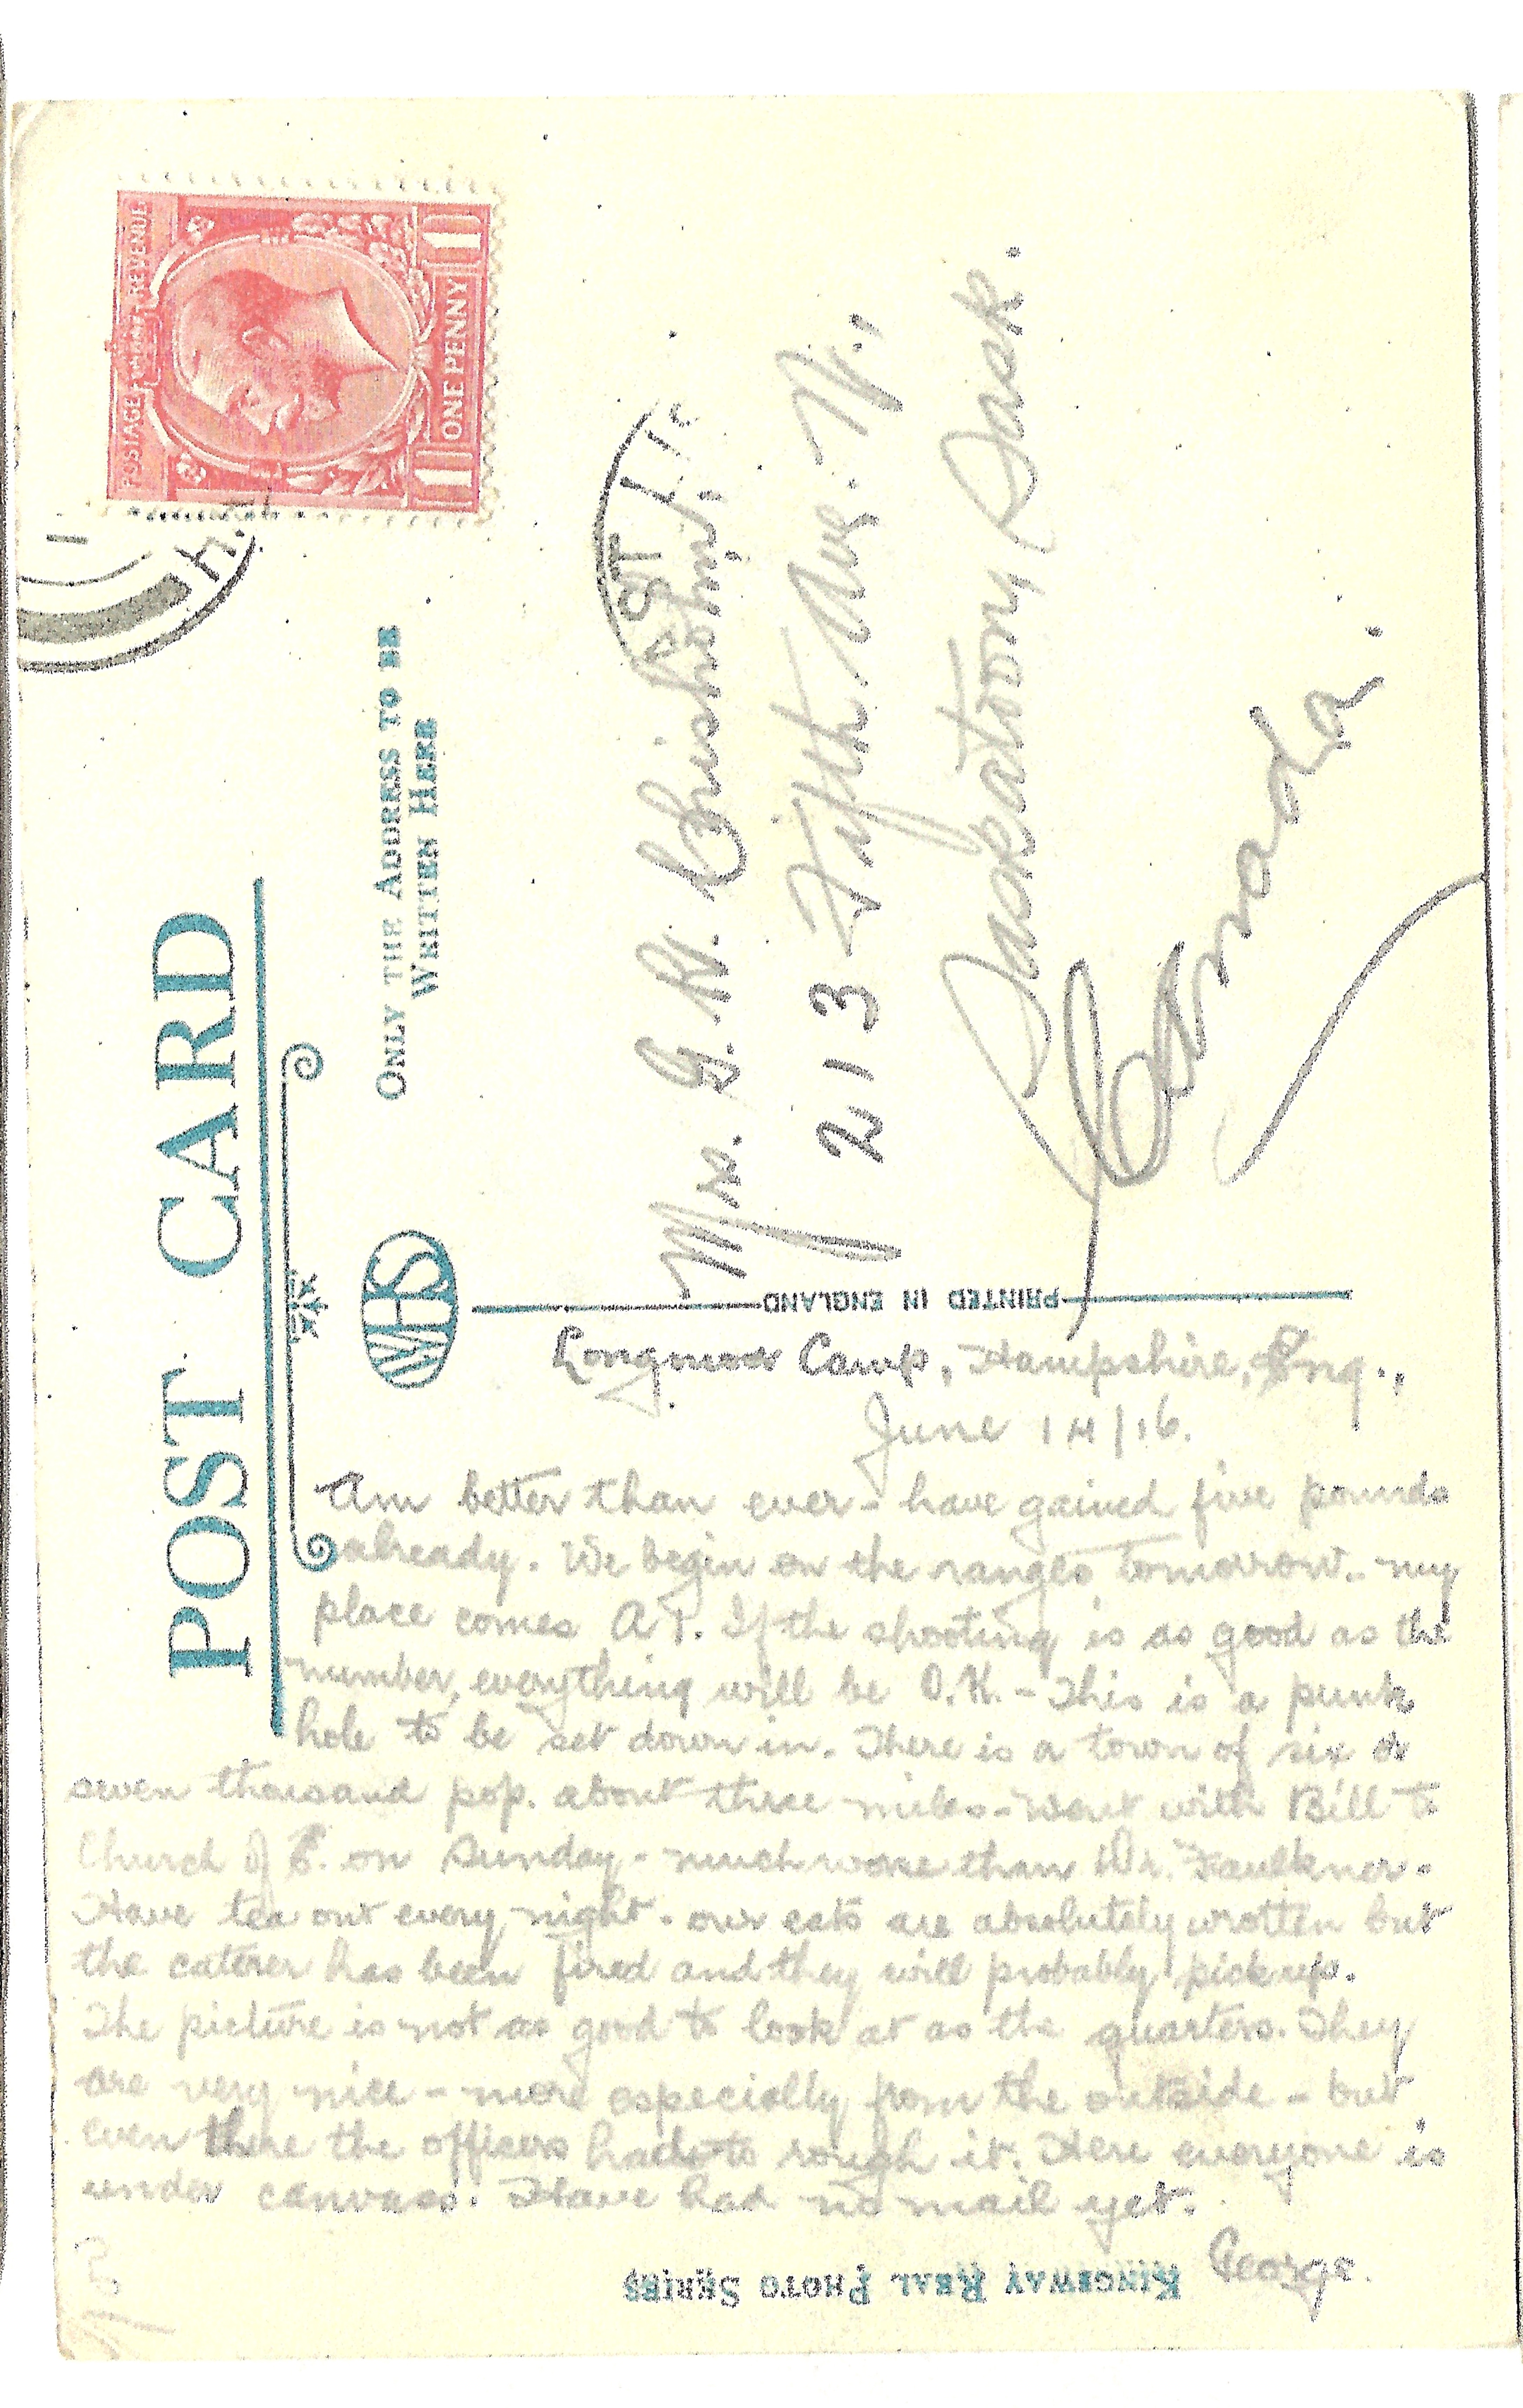 POST CARD
ONLY THE ADDRESS TO BE
WRITTEN HERE
WHS
POSTAGE REVENUE
ONE PENNY
1 1
Mrs. G. W. Chisholm,
213 Fifth Ave. N.,
Saskatoon, Sask.
Canada.
PRINTED IN ENGLAND
Longmoor Camp, Hampshire, Eng.,
June 14/16.
Am better than ever - have gained five pounds
already. We begin on the ranges tomorrow. my
place comes A1. If the shooting is as good as the
number, everything will be O.K. - This is a punk
hole to be set down in. There is a town of six or
seven thousand pop. about three miles - went with Bill to
Church of E. on Sunday - much worse than Dr. Faulkner.
Have tea out every night. our eats are absolutely wrotten but
the caterer has been fired and they will probably pick up.
The picture is not as good to look at as the quarters. They
are very nice - more especially from the outside - but
even there the officers had to rough it. Here everyone is
under canvass. Have had no mail yet.
George.
KINGSWAY REAL PHOTO SERIES